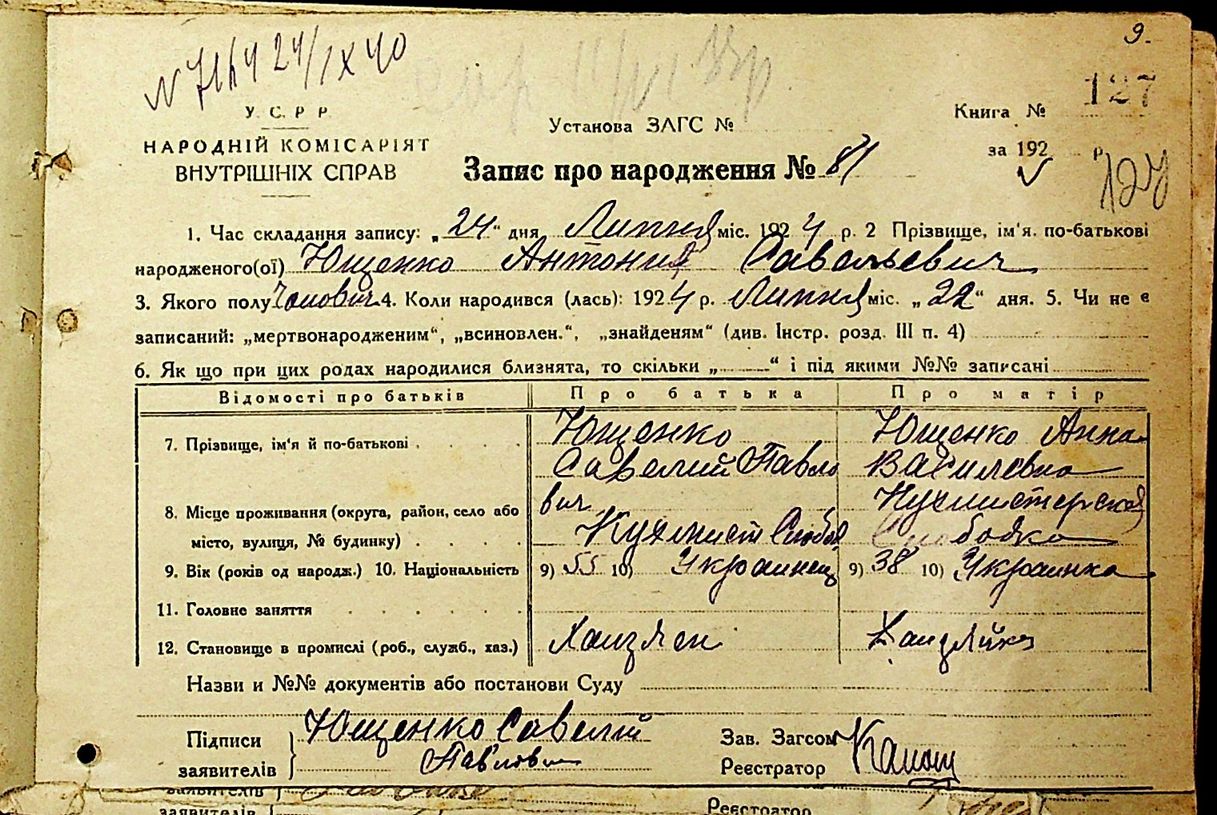 9.
N 7164 24/IX 40
127
У. С. Р. Р.
НАРОДНІЙ КОМІСАРІЯТ
ВНУТРІШНІХ СПРАВ
Установа ЗАГС №
Книга №
за 192 р.
127
Запис про народження № 81
1. Час складання запису: „24“ дня Липня міс. 1924 р. 2 Прізвище, ім'я. по-батькові
народженого(ої) Ющенко Антоний Савельевич
3. Якого полу Чолович 4. Коли народився (лась): 1924 р. Липня міс. „22“ дня. 5. Чи не є
записаний: „мертвонародженим“, „всиновлен.“, „знайденям“ (див. Інстр. розд. III п. 4)
6. Як що при цих родах народилися близнята, то скільки „ “ і під якими №№ записані
Відомості про батьків Про батька Про матір
7. Прізвище, ім'я й по-батькові Ющенко Савелий Павлович Ющенко Анна Василевна
8. Місце проживання (округа, район, село або
місто, вулиця, № будинку) Кухмист Слобод Кухмистерская Слободка
9. Вік (років од народж.) 10. Національність 9) 55 10) Украинец 9) 38 10) Украинка
11. Головне заняття
12. Становище в промислі (роб., служб., хаз.) Хазяен Хазяйка
Назви и №№ документів або постанови Суду
Підписи
заявителів } Ющенко Савелий
Павлович
Зав. Загсом
Реєстратор
заявителів
заявителів
Реєстратор